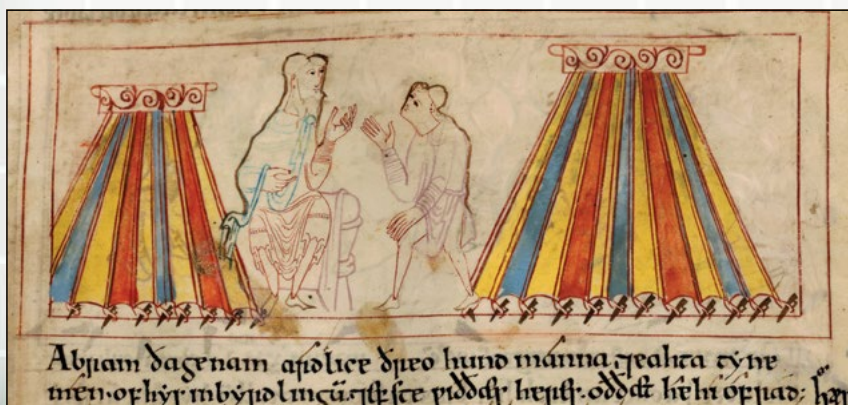 Abram ða genam ardlice ðreo hund manna. ⁊ eahta tyne
men. of hys inbyrdlingū. ⁊ efste wið ðæs heres. oð ðæt he hi of rad;